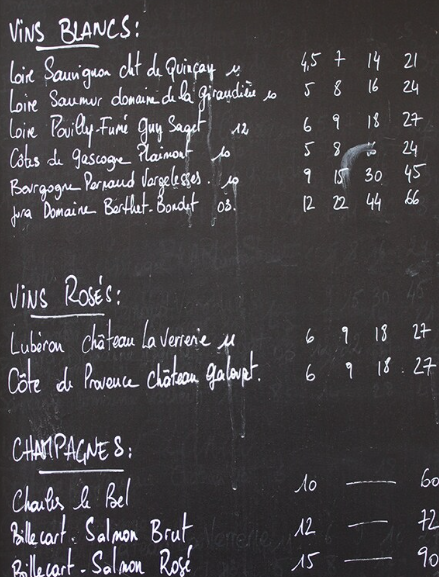 VINS BLANCS:
Loire Sauvignon cht de Quinçay 11 4,5 7 14 21
Loire Saumur domaine de la Giraudière 10 5 8 16 24
Loire Pouilly-Fumé Guy Saget 12 6 9 18 27
Côtes de Gascogne Plaimont 10 5 8 16 24
Bourgogne Pernand Vergelesses. 10 9 15 30 45
Jura Domaine Berthet-Bondet 03. 12 22 44 66
VINS ROSÉS:
Lubéron château La Verrerie 11 6 9 18 27
Côte de Provence château Galoupet. 6 9 18 27
CHAMPAGNES:
Charles le Bel 10 — 60
Billecart-Salmon Brut 12 — 72
Billecart-Salmon Rosé 15 — 90